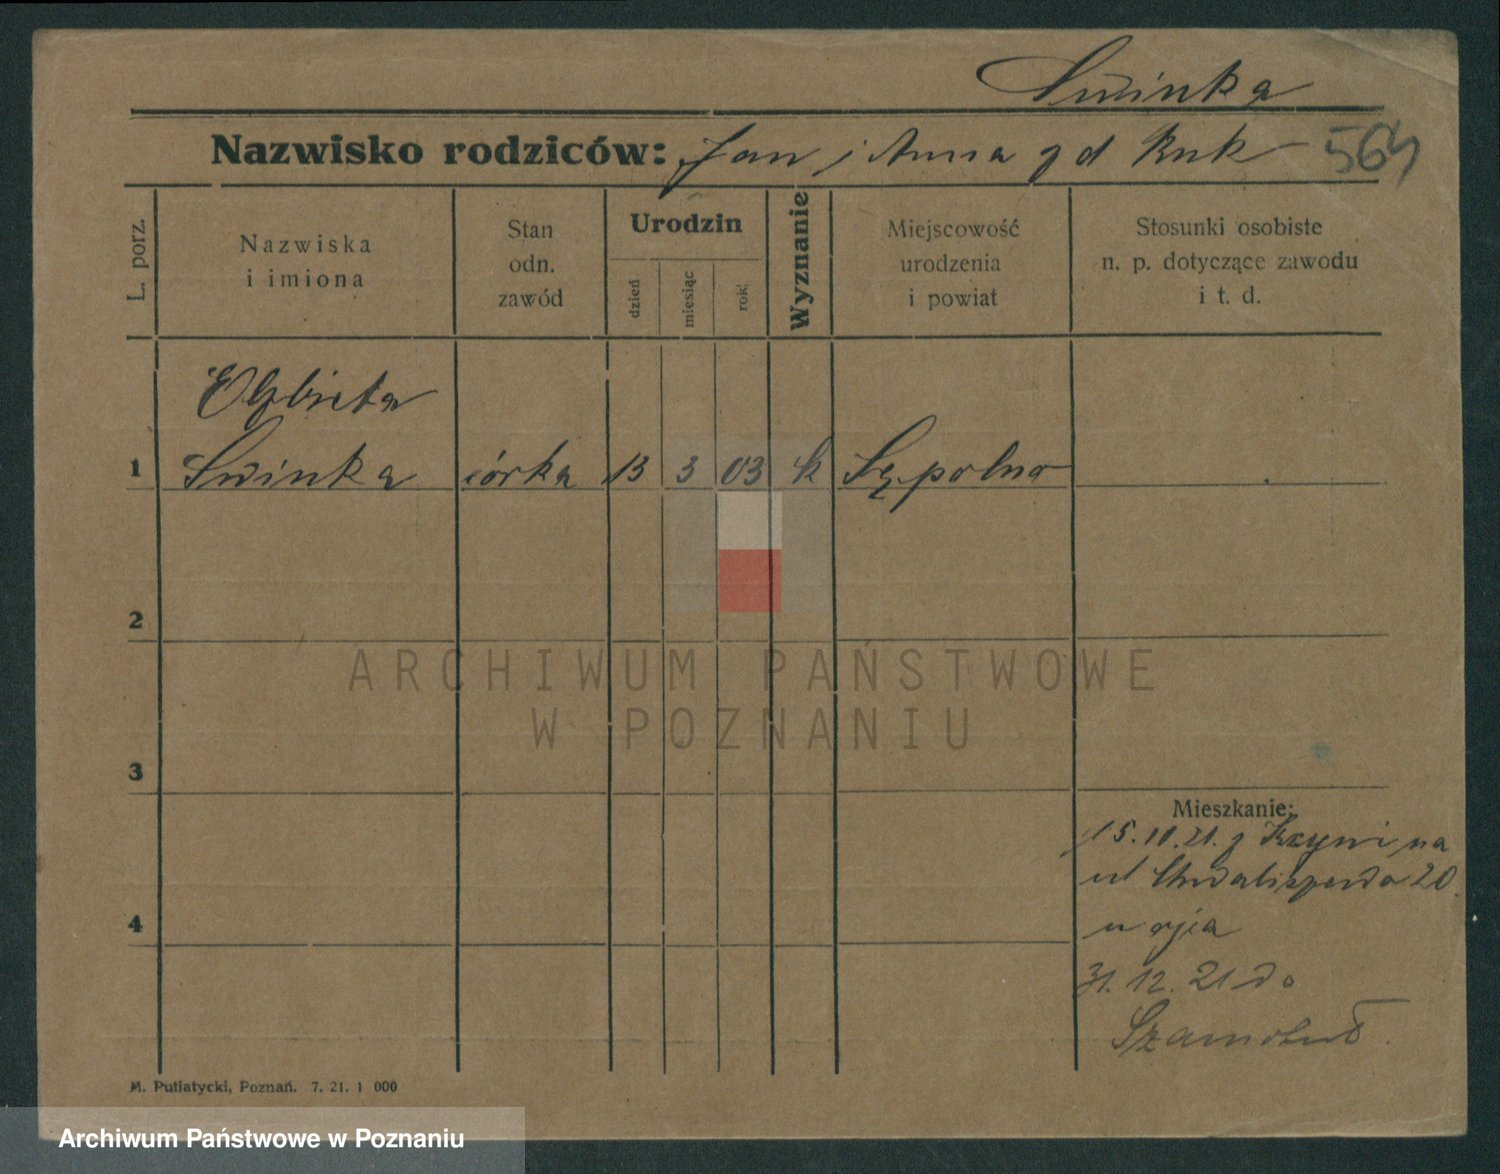 Swinka
Nazwisko rodziców: Jan i Anna z d Kuk 564
L. porz.
Nazwiska
i imiona
Stan
odn.
zawód
Urodzin
dzień
miesiąc
rok
Wyznanie
Miejscowość
urodzenia
i powiat
Stosunki osobiste
n. p. dotyczące zawodu
i t. d.
Elżbieta
1 Swinka córka 13 3 03 k Sępolno
2
ARCHIWUM PAŃSTWOWE
W POZNANIU
3
Mieszkanie:
15.10.21. z Kcyni na
ul 20
4
31.12.21 do
Szamotuł
M. Putiatycki, Poznań. 7. 21. 1 000
Archiwum Państwowe w Poznaniu